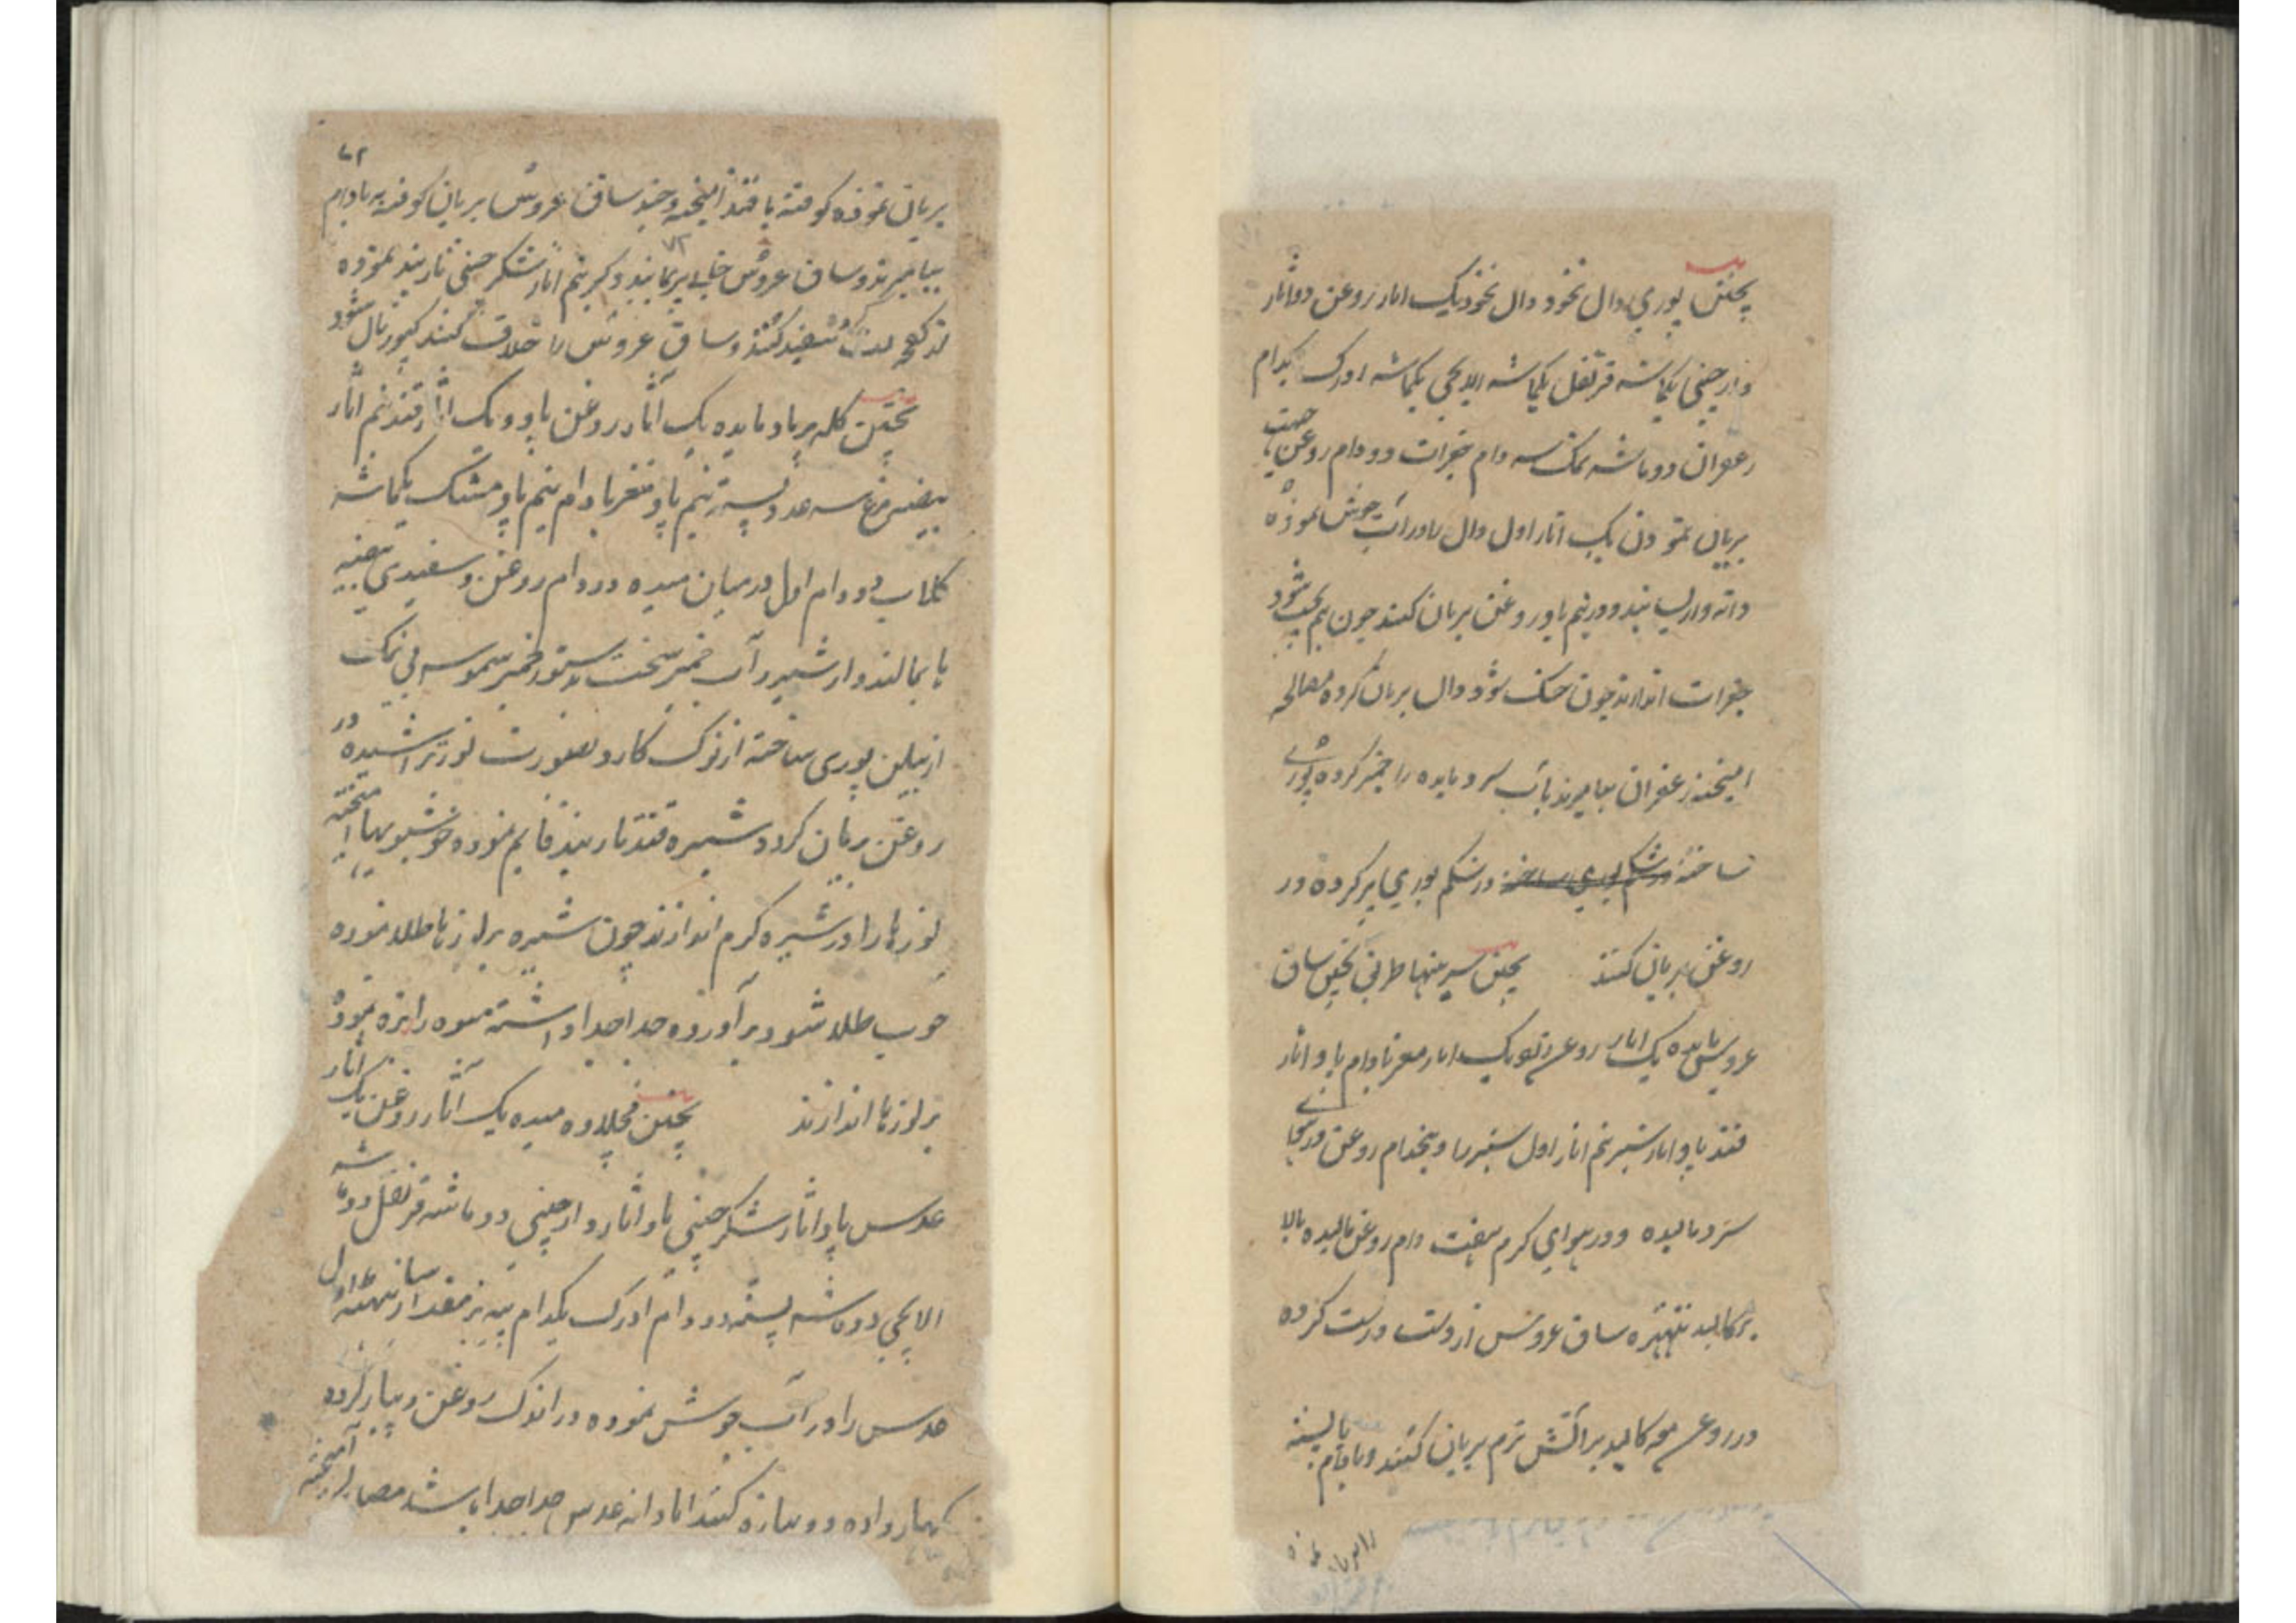 پختن پوري دال نخود دال نخود یک اثار روغن دو اثار
دارچینی یکماشه قرنفل یکماشه الایچی یکماشه ادرک یکدام
زعفران دو ماشه نمک سه دام جغرات دو دام روغن جهت
بریان نمودن یک اثار اول دال را در آب جوش نموده
دانه دار بسایند و در نیم پاو روغن بریان کنند چون نیم پخت شود
جغرات اندازند چون خشک شود دال بریان کرده مصالحه
امیخته زعفران بیامیزند بآب سرد مایده را خمیر کرده پوری
ساخته در شکم پوري پر کرده در
روغن بریان کنند پختن طریق پختن ساق
عروس مایده یک اثار روغن یک اثار مغز بادام پاو اثار
قند پاو اثار شیر نیم اثار اول شیر را و پنجدام روغن در
سرد مالیده و در هوای گرم هفت دام روغن مالیده بالا
بر کالبد ساق عروس از دست درست کرده
در روغن مع کالبد بر آتش نرم بریان کنند و بادام یا پسته
۷۲
بریان نموده کوفته با قند امیخته و چند ساق عروس بریان کوفته بر بادام
بیامیزند و ساق عروس خالی پر نمایند و دیگر نیم اثار شکر چینی تاربند نموده
سفید کنند و ساق عروس را غلاف کنند
پختن کله پر باد مایده یک آثار روغن پاو و یک اثار قند نیم اثار
بیضه مرغ سه عدد پسته نیم پاو مغز بادام نیم پاو مشک یکماشه
گلاب دو دام اول در میان میده دو دام روغن و سفیدی بیضه
با بمالند و از شیر و آب خمیر سخت بدستور خمیر سموسه بی نمک
از بیلن پوری ساخته از نوک کارد بصورت لوز تراشیده در
روغن بریان کرده شیره قند تاربند قایم نموده خوشبویها امیخته
لوزها را در شیره گرم اندازند چون شیره بر لوزها طلا نموده
خوب طلا شود بر آورده جدا جدا داشته میوه را ریزه نموده
بر لوزها اندازند پختن میده یک آثار روغن یک اثار
عدس پاو اثار شکر چینی پاو اثار دارچینی دو ماشه قرنفل دو ماشه
الایچی دو ماشه پسته دو دام ادرک یکدام پیاز مقدار اول
عدس را در آب جوش نموده در اندک روغن و پیاز کرده
بگهار داده دو پیازه کنند اما دانه عدس جدا جدا باشد مصالح آمیخته